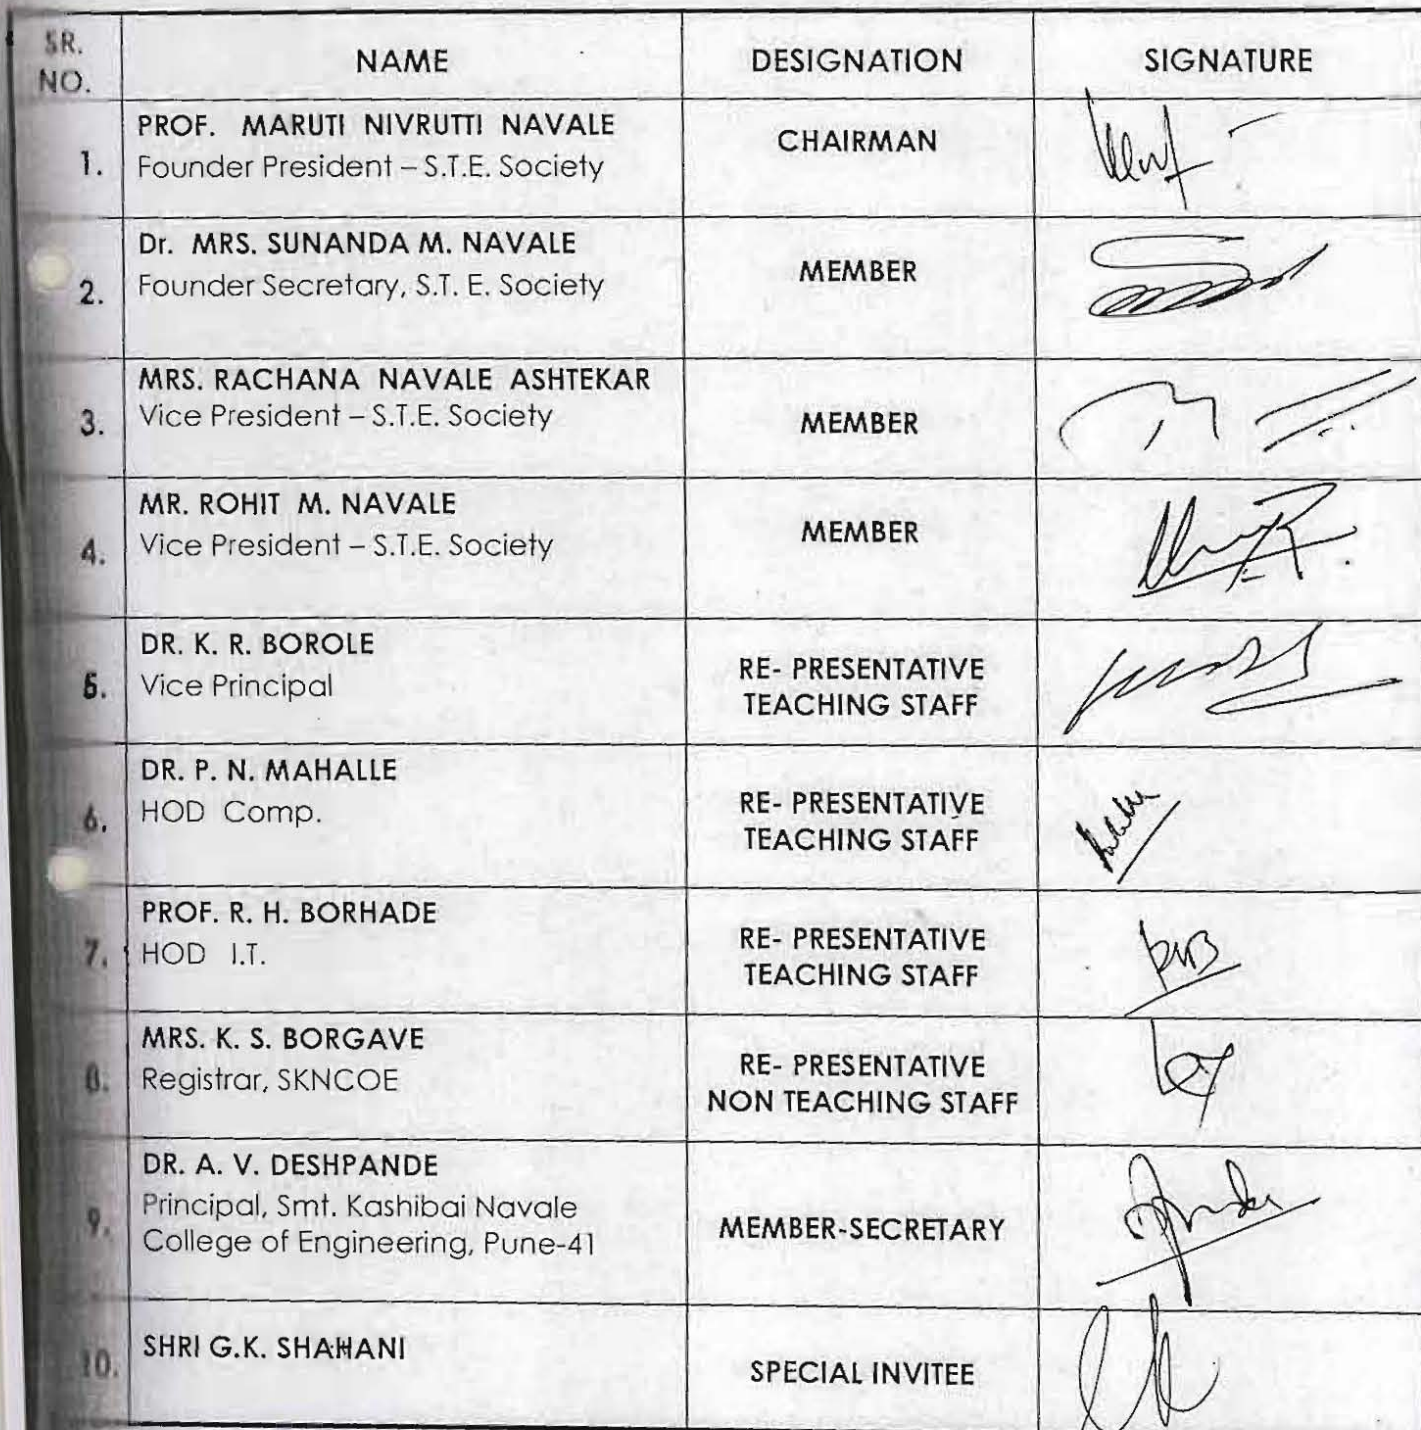 SR.
NO.
NAME
DESIGNATION
SIGNATURE
1.
PROF. MARUTI NIVRUTTI NAVALE
Founder President – S.T.E. Society
CHAIRMAN
2.
Dr. MRS. SUNANDA M. NAVALE
Founder Secretary, S.T. E. Society
MEMBER
3.
MRS. RACHANA NAVALE ASHTEKAR
Vice President – S.T.E. Society
MEMBER
4.
MR. ROHIT M. NAVALE
Vice President – S.T.E. Society
MEMBER
5.
DR. K. R. BOROLE
Vice Principal
RE- PRESENTATIVE
TEACHING STAFF
6.
DR. P. N. MAHALLE
HOD Comp.
RE- PRESENTATIVE
TEACHING STAFF
7.
PROF. R. H. BORHADE
HOD I.T.
RE- PRESENTATIVE
TEACHING STAFF
8.
MRS. K. S. BORGAVE
Registrar, SKNCOE
RE- PRESENTATIVE
NON TEACHING STAFF
9.
DR. A. V. DESHPANDE
Principal, Smt. Kashibai Navale
College of Engineering, Pune-41
MEMBER-SECRETARY
10.
SHRI G.K. SHAHANI
SPECIAL INVITEE